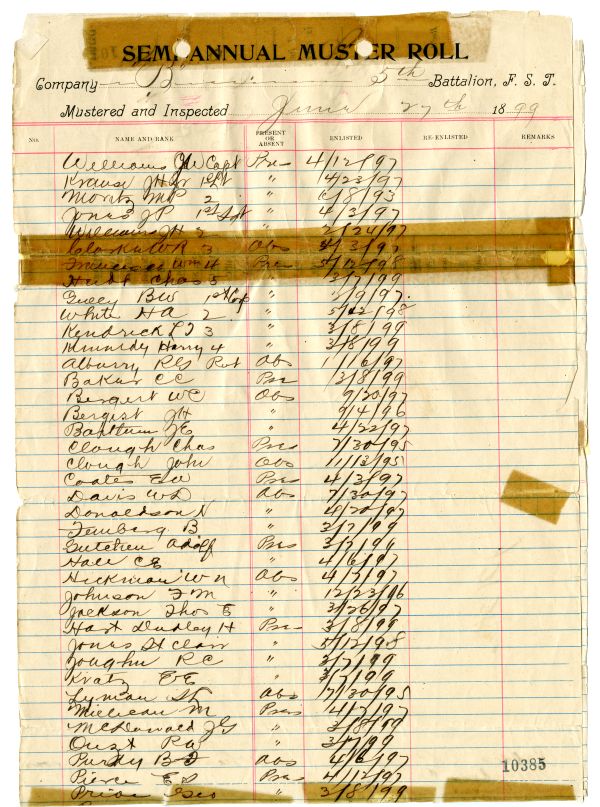 SEMI-ANNUAL MUSTER ROLL
Company B 5th Battalion, F. S. T.
Mustered and Inspected June 27th 1899
No. NAME AND RANK PRESENT OR ABSENT ENLISTED RE-ENLISTED REMARKS
Williams Capt Pres 4/12/97
Krause JH Jr 1st Lt " 4/23/97
Moritz MP 2 " /8/93
Jonas JP 1st Sgt " 4/3/97
Williams JH 2 " 2/24/97
Clark WR 3 Abs 4/3/97
Francisco Wm 4 Pres 5/12/98
Hunt Chas 5 " 3/7/99
Gully BW 1st Cop " /9/97
White HA 2 " 5/12/98
Kendrick LJ 3 " 3/8/99
Kennedy Harry 4 " 3/8/99
Alburry RG Pvt Abs 1/16/97
Baker CC Pres 3/8/99
Bergert WC Abs 9/20/97
Bergist JH " 9/4/96
JE " 4/22/97
Clough Chas Pres 7/30/95
Clough John Abs 11/13/95
Coates EW Pres 4/3/97
Davis WD Abs 7/30/97
Donaldson N " 4/20/97
B " 3/7/99
Adolf Pres 3/7/99
Hall CE " 4/6/97
Hickman WN Abs 4/7/97
Johnson FM " 12/23/96
Jackson Thos E " 3/26/97
Hart Dudley H Pres 3/8/99
Jonas St Clair " 5/12/98
RC " 3/7/99
Kratz EE " 3/7/99
Lyman Abs 7/30/95
M Pres 4/7/97
McDonald JG " 3/8/99
" 3/7/99
Purdy BF Abs 4/6/97
Pierce ES Pres 4/12/97
Prior Geo " 3/8/99
10385